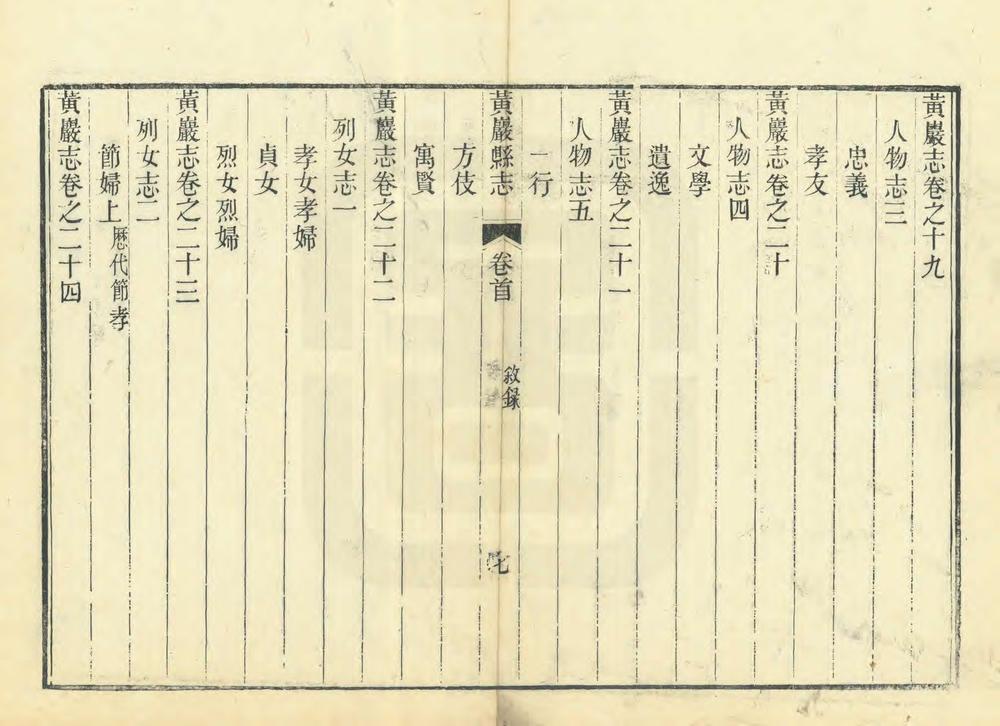 黃巖志卷之十九
人物志三
忠義
孝友
黃巖志卷之二十
人物志四
文學
遺逸
黃巖志卷之二十一
人物志五
一行
黃巖縣志
卷首
敘錄
七
方伎
寓賢
黃巖志卷之二十二
列女志一
孝女孝婦
貞女
烈女烈婦
黃巖志卷之二十三
列女志二
節婦上 歷代節孝
黃巖志卷之二十四